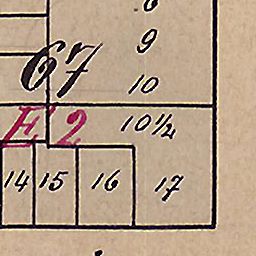 9
67
10
E 2 10½
14 15 16 17